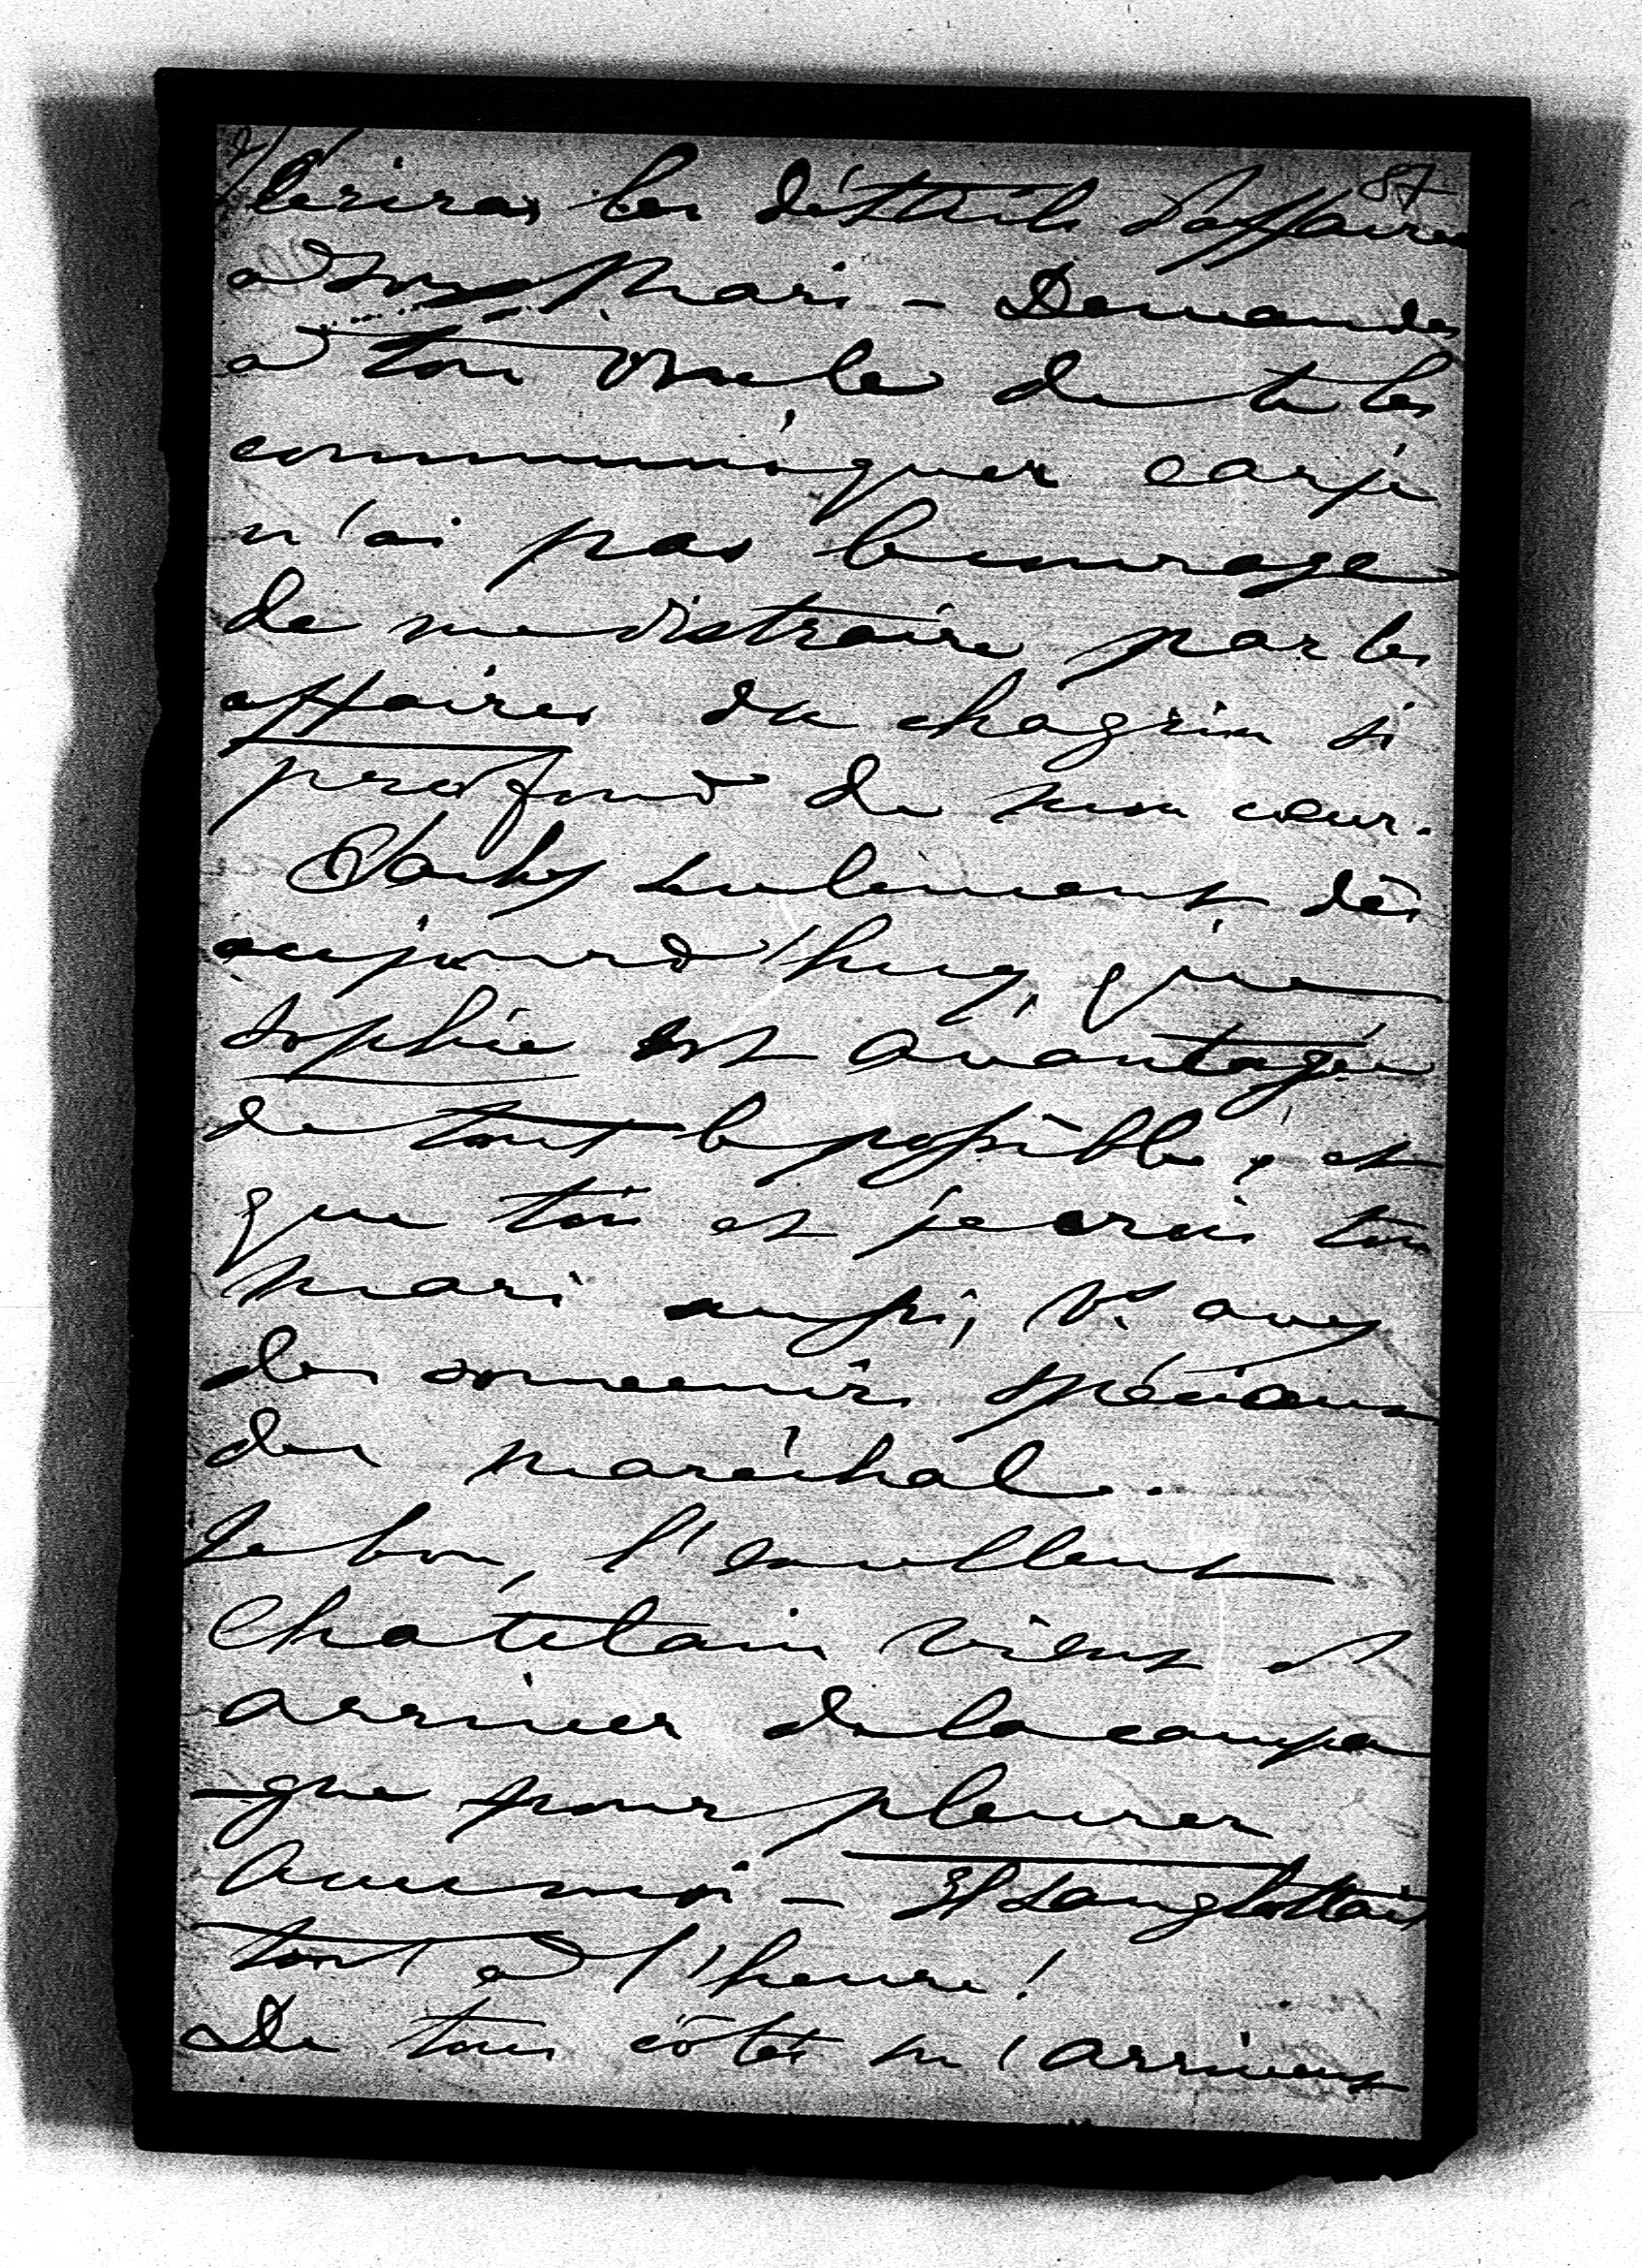 2/
87
écrirai les détails d'affaires
à ton Mari - Demandes
à ton oncle de te les
communiquer car je
n'ai pas le courage
de me distraire par les
affaires du chagrin si
profond de mon cœur.
Sachez seulement dès
aujourd'huy, que
Sophie est avantagée
de tout le possible, et
que toi et je crois ton
mari aussi, Vs avez
des souvenirs spéciaux
du maréchal.
Le bon, l'excellent
Chatelain vient d'
arriver de la campa
-gne pour pleurer
avec moi - Il sanglottait
tout à l'heure!
De tous côtés m'arrivent